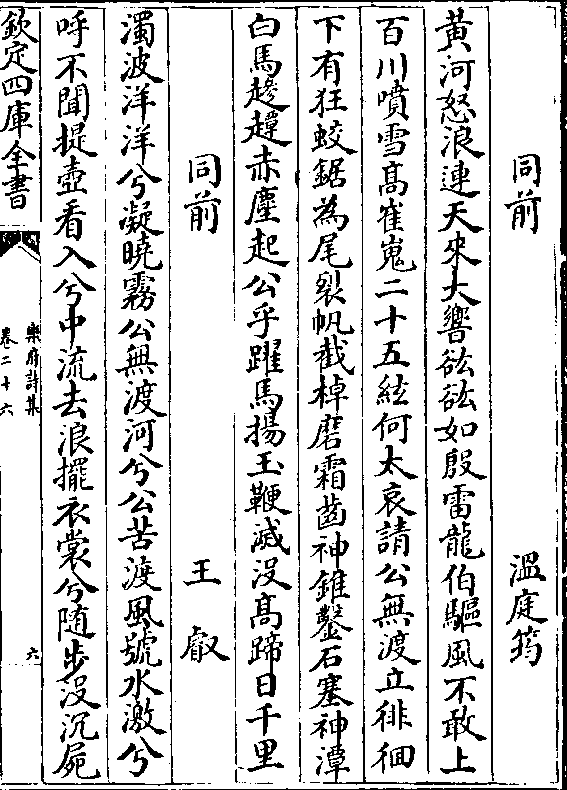 同前　溫庭筠
黃河怒浪連天來大響谹谹如殷雷龍伯驅風不敢上
百川噴雪高崔嵬二十五絃何太哀請公無渡立徘徊
下有狂蛟鋸為尾裂帆截棹磨霜齒神錐鑿石塞神潭
白馬䟃𧽼赤塵起公乎躍馬揚玉鞭滅没高蹄日千里
同前　王叡
濁波洋洋兮凝曉霧公無渡河兮公苦渡風號水激兮
呼不聞提壺看入兮中流去浪擺衣裳兮随步没沉屍
欽定四庫全書
樂府詩集
卷二十六
六